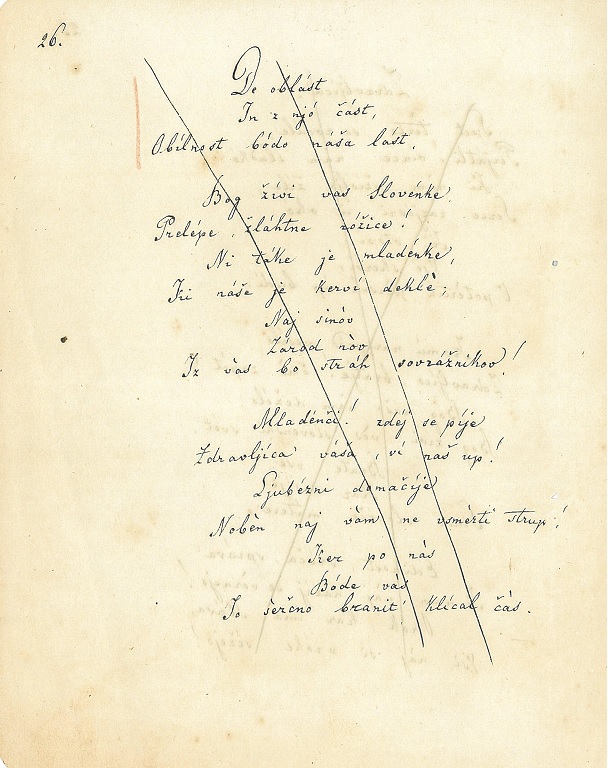 26.
De oblást
In z njó část,
Obílnost bódo náša lást.
Bog živi vas Slovénke
Prelépe, žláhtne róžice!
Ni táke je mladénke,
Ki náše je kerví deklè;
Naj sinóv
Zárod nòv
Iz vàs bo stráh sovrážnikov!
Mladénči! zdéj se píje
Zdravljíca váša, ví naš up!
Ljubézni domačíje
Nobèn naj vàm ne vsmŕti strup!
Ker po nás
Bóde vàs
Jo serčno bránit' klícal čàs.